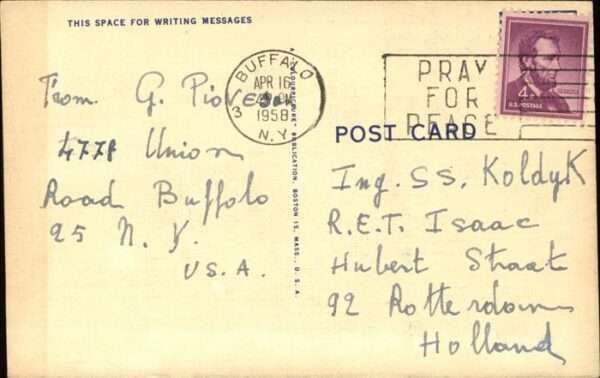 THIS SPACE FOR WRITING MESSAGES
From G. Piovesan
4778 Union
Road Buffalo
25 N.Y.
U.S.A.
BUFFALO
APR 16
1958
N.Y.
3
PRAY
FOR
PEACE
4¢
U.S. POSTAGE
POST CARD
Ing. S.S. Koldyk
R.E.T. Isaac
Hubert Straat
92 Rotterdam
Holland
PUBLICATION, BOSTON 15, MASS., U.S.A.